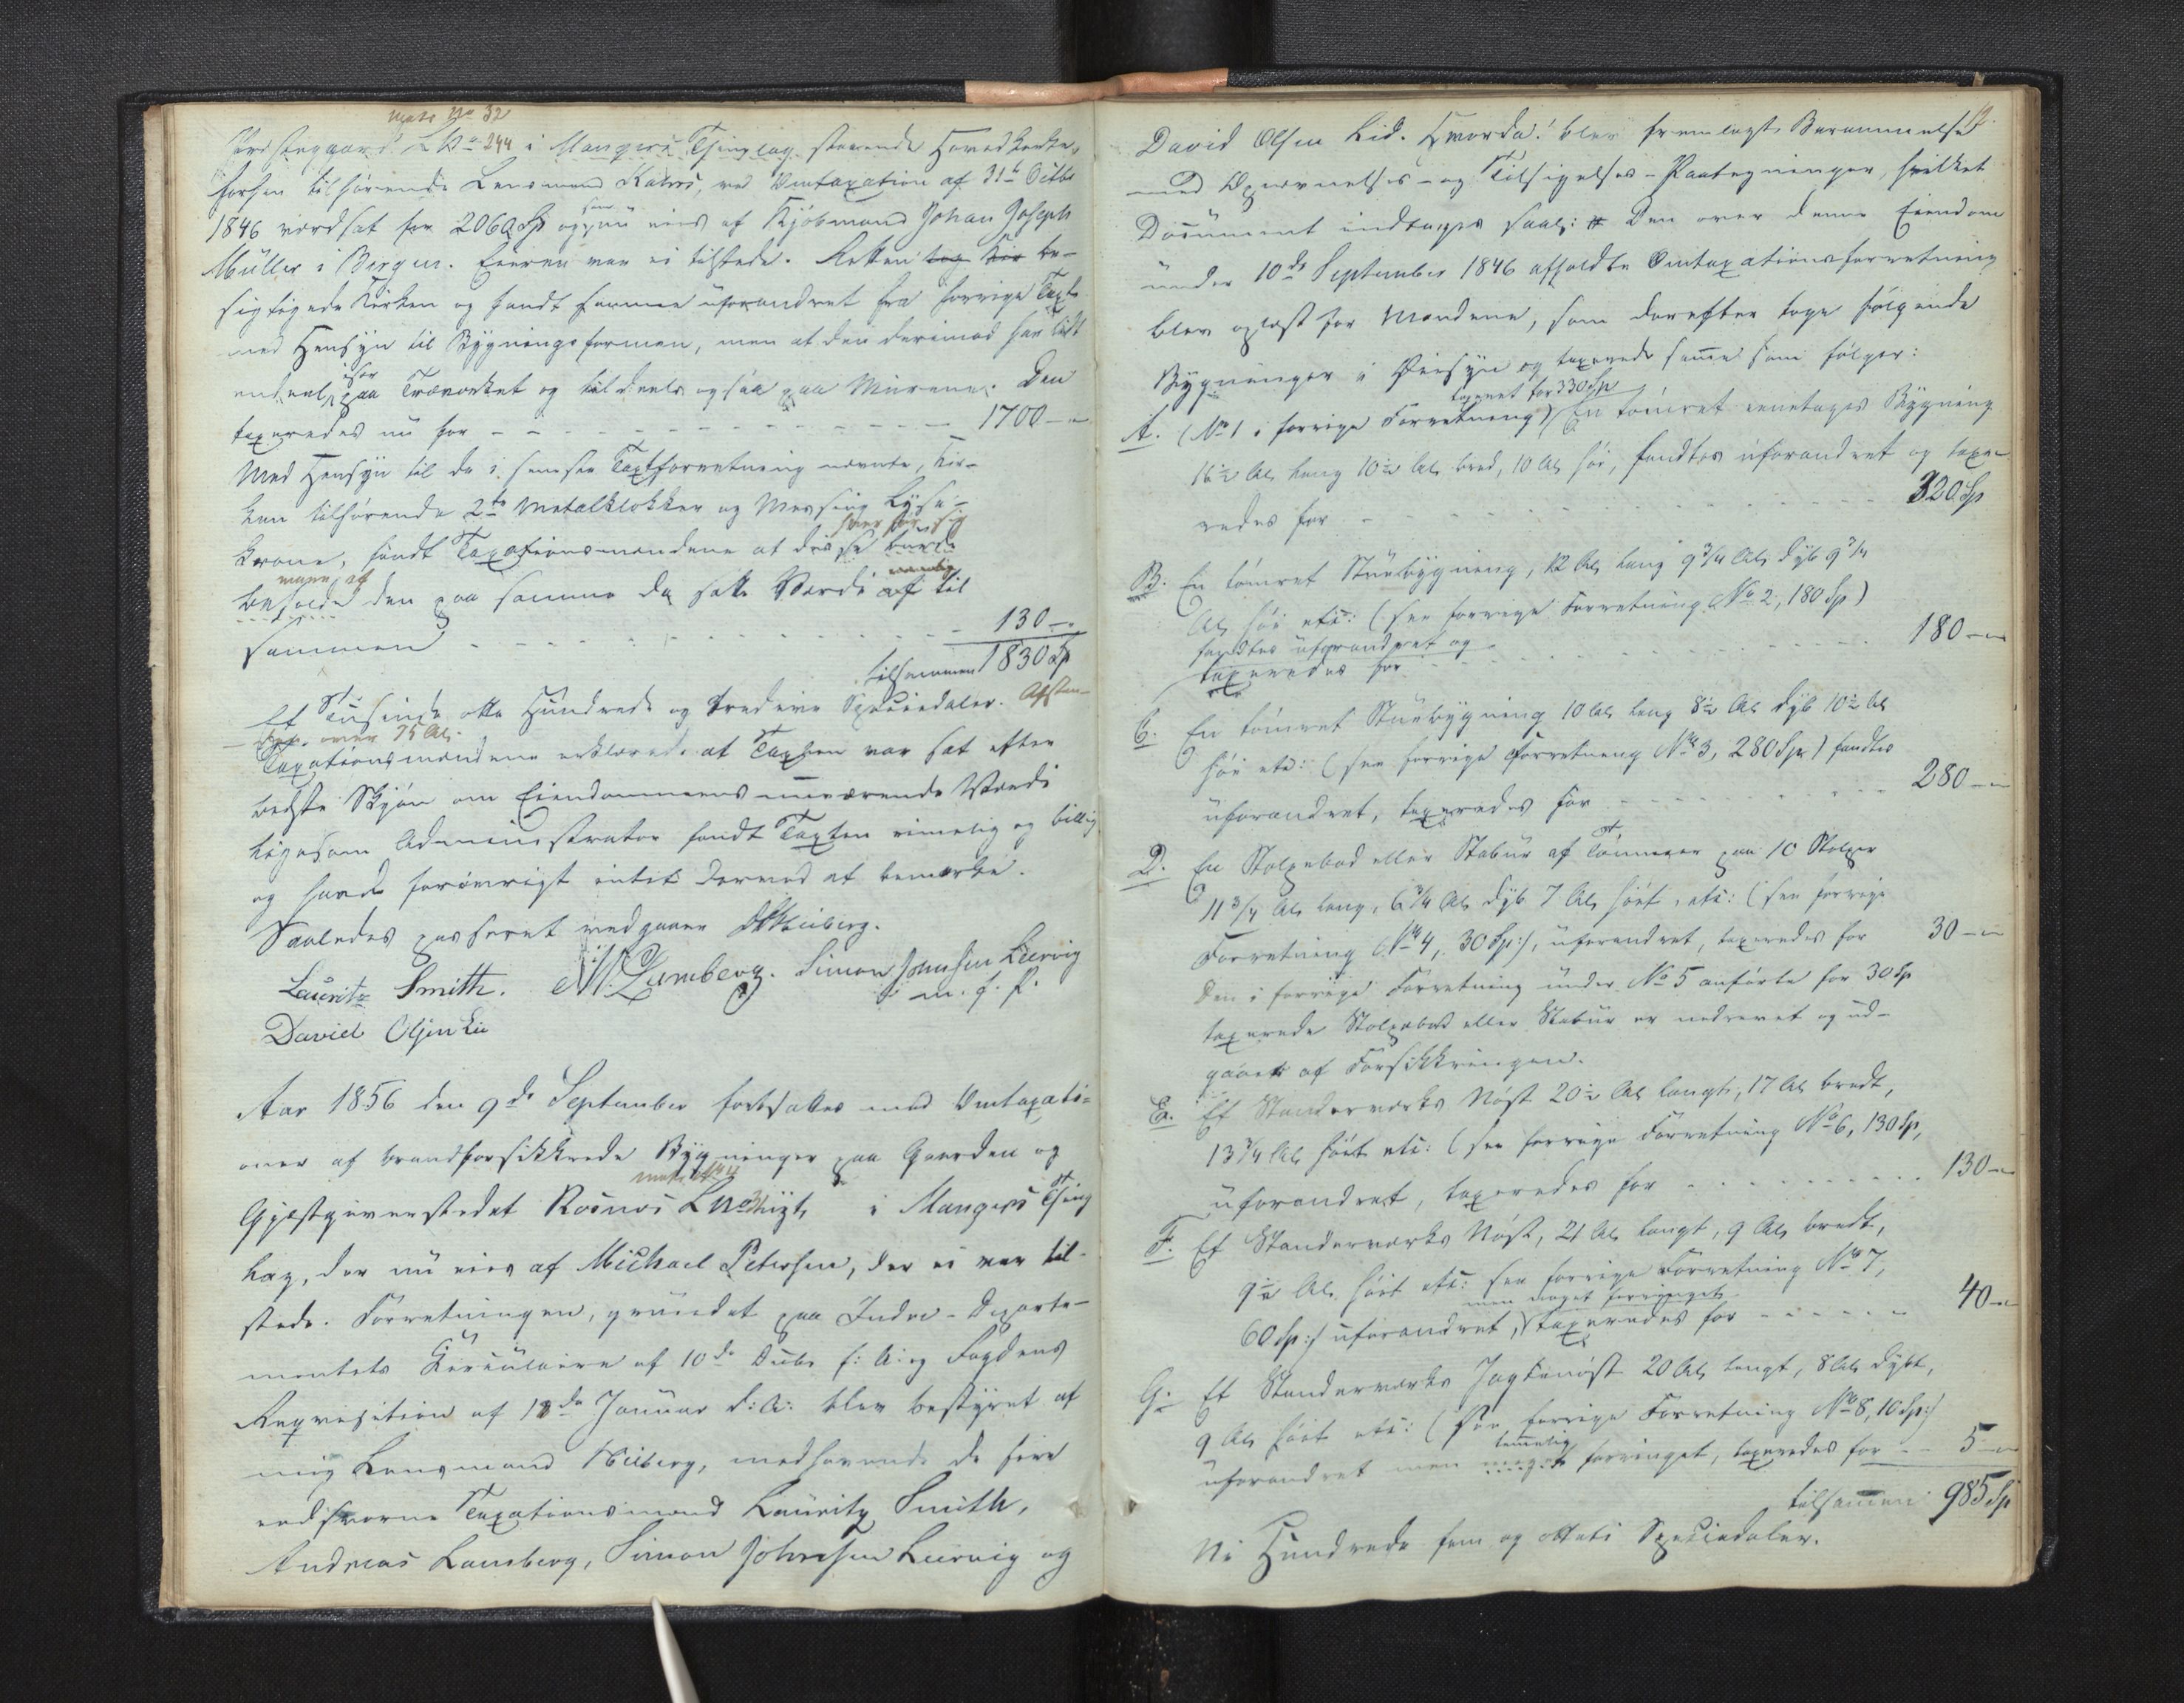 Matr No 32
L No 244 i Mangers Thinglag staaende Hovedkirke,
forhen tilhørende Lensmand Kahrs, ved Omtaxation af 31te Octbr
1846 værdsat for 2060 Sp og som nu eies af Kjøbmand Johan Joseph
Müller i Bergen. Eieren var ei tilstede. Retten be-
sigtigede Kirken og fandt samme uforandret fra forrige Taxt
med Hensyn til Bygningsformen, men at den derimod har lidt
endeel, især paa Træværket og tildeels ogsaa paa Murene. Den
taxeredes nu for - - - 1700 —
Med Hensyn til de i seneste Taxtforretning nævnte, Kir-
ken tilhørende 2de Metalklokker og Messing Lyse-
krone, fandt Taxationsmændene at disse burde
hver for sig
beholde den paa samme da satte Værdi af til
sammen - - - 130 —
tilsammen 1830 Sp
Et Tusinde otte Hundrede og tredive Speciedaler.
over 75 Al.
Taxationsmændene erklærede at Taxten var sat efter
bedste Skjøn om Eiendommens nuværende Værdi
ligesom Administrator fandt Taxten rimelig og billig
og havde forøvrigt intet derved at bemærke.
Saaledes passeret vedgaaer
Lauritz Smith. Lamberg. Simon Johnsen Leirvig
m. f. P.
David Olsen Lie
Aar 1856 den 9de September fortsattes med Omtaxati-
oner af brandforsikkrede Bygninger paa Gaarden og
Gjæstgiverstedet Rosnøs L No i Mangers Thing
lag, der nu eies af Michael Petersen, der ei var til-
stede. Forretningen, grundet paa Indre-Departe-
mentets Circulaire af 10de Decbr f: A: og Fogdens
Reqvisition af 18de Januar d: A: blev bestyret af
mig Lensmand Neiberg, medhavende de fire
edsvorne Taxationsmænd Lauritz Smith,
Andreas Lamberg, Simon Johnesen Leirvig og
12.
David Olsen Lid. Hvorda! blev fremlagt Berammelse
med Opnævnelses- og Tilsigelses-Paategninger, hvilket
Document indtages saal: Den over denne Eiendom
under 10de September 1846 afholdte Omtaxationsforretning
blev oplæst for Mændene, som derefter toge følgende
Bygninger i Øiesyn og taxerede samme som følger:
taxeret for 330 Sp
A. (No 1 i forrige Forretning) En tømret eenetages Bygning
16½ Al. lang 10½ Al. bred, 10 Al. høi, fandtes uforandret og taxe-
redes for - - - 320 Sp
B. En tømret Stuebygning, 12 Al. lang 9¾ Al. dyb 9¾
Al. høi etc: (see forrige Forretning No 2, 180 Sp)
fandtes uforandret og
taxeredes for - - - 180 —
C. En tømret Stuebygning 10 Al. lang 8½ Al. dyb 10½ Al
høi etc: (see forrige Forretning No 3, 280 Sp) fandtes
uforandret, taxeredes for - - - 280 —
D. En Stolpebod eller Stabur af Tømmer paa 10 Stolper
11¾ Al. lang, 6¾ Al. dyb 7 Al. høit, etc: (see forrige
Forretning No 4, 30 Sp:), uforandret, taxeredes for 30 —
Den i forrige Forretning under No 5 anførte for 30 Sp
taxerede Stolpebod eller Stabur er nedrevet og ud-
gaaet af Forsikkringen.
E. Et Standerværks Nøst 20½ Al. langt, 17 Al. bredt,
13¾ Al. høit etc: (see forrige Forretning No 6, 130 Sp,
uforandret, taxeredes for - - - 130 —
F. Et Standerværks Nøst, 21 Al. langt, 9 Al. bredt,
9½ Al. høit etc: see forrige Forretning No 7,
men noget forringet
60 Sp:) uforandret, taxeredes for - - - 40 —
G. Et Standerværks Jagtenøst 20 Al. langt, 8 Al. dybt,
9 Al. høit etc: (See forrige Forretning No 8, 10 Sp:)
temmelig
uforandret men meget forringet, taxeredes for - - 5 —
tilsammen 985 Sp
Ni Hundrede fem og otteti Speciedaler.